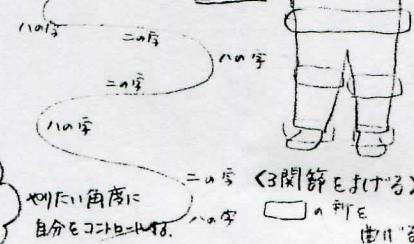 ハの字
ニの字
ハの字
ニの字
ハの字
ニの字
ハの字
やりたい角度に
自分をコントロールする.
<3関節をまげる>
の所を
曲げる